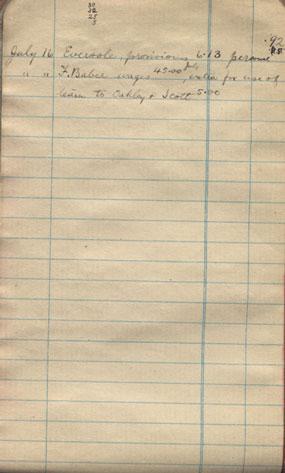 30
32
25
5
.92
July 16 Eversole, provisions 6.13
" " F. Baber wages 45.00 extra for use of
team to Oakley & Scott 5.00